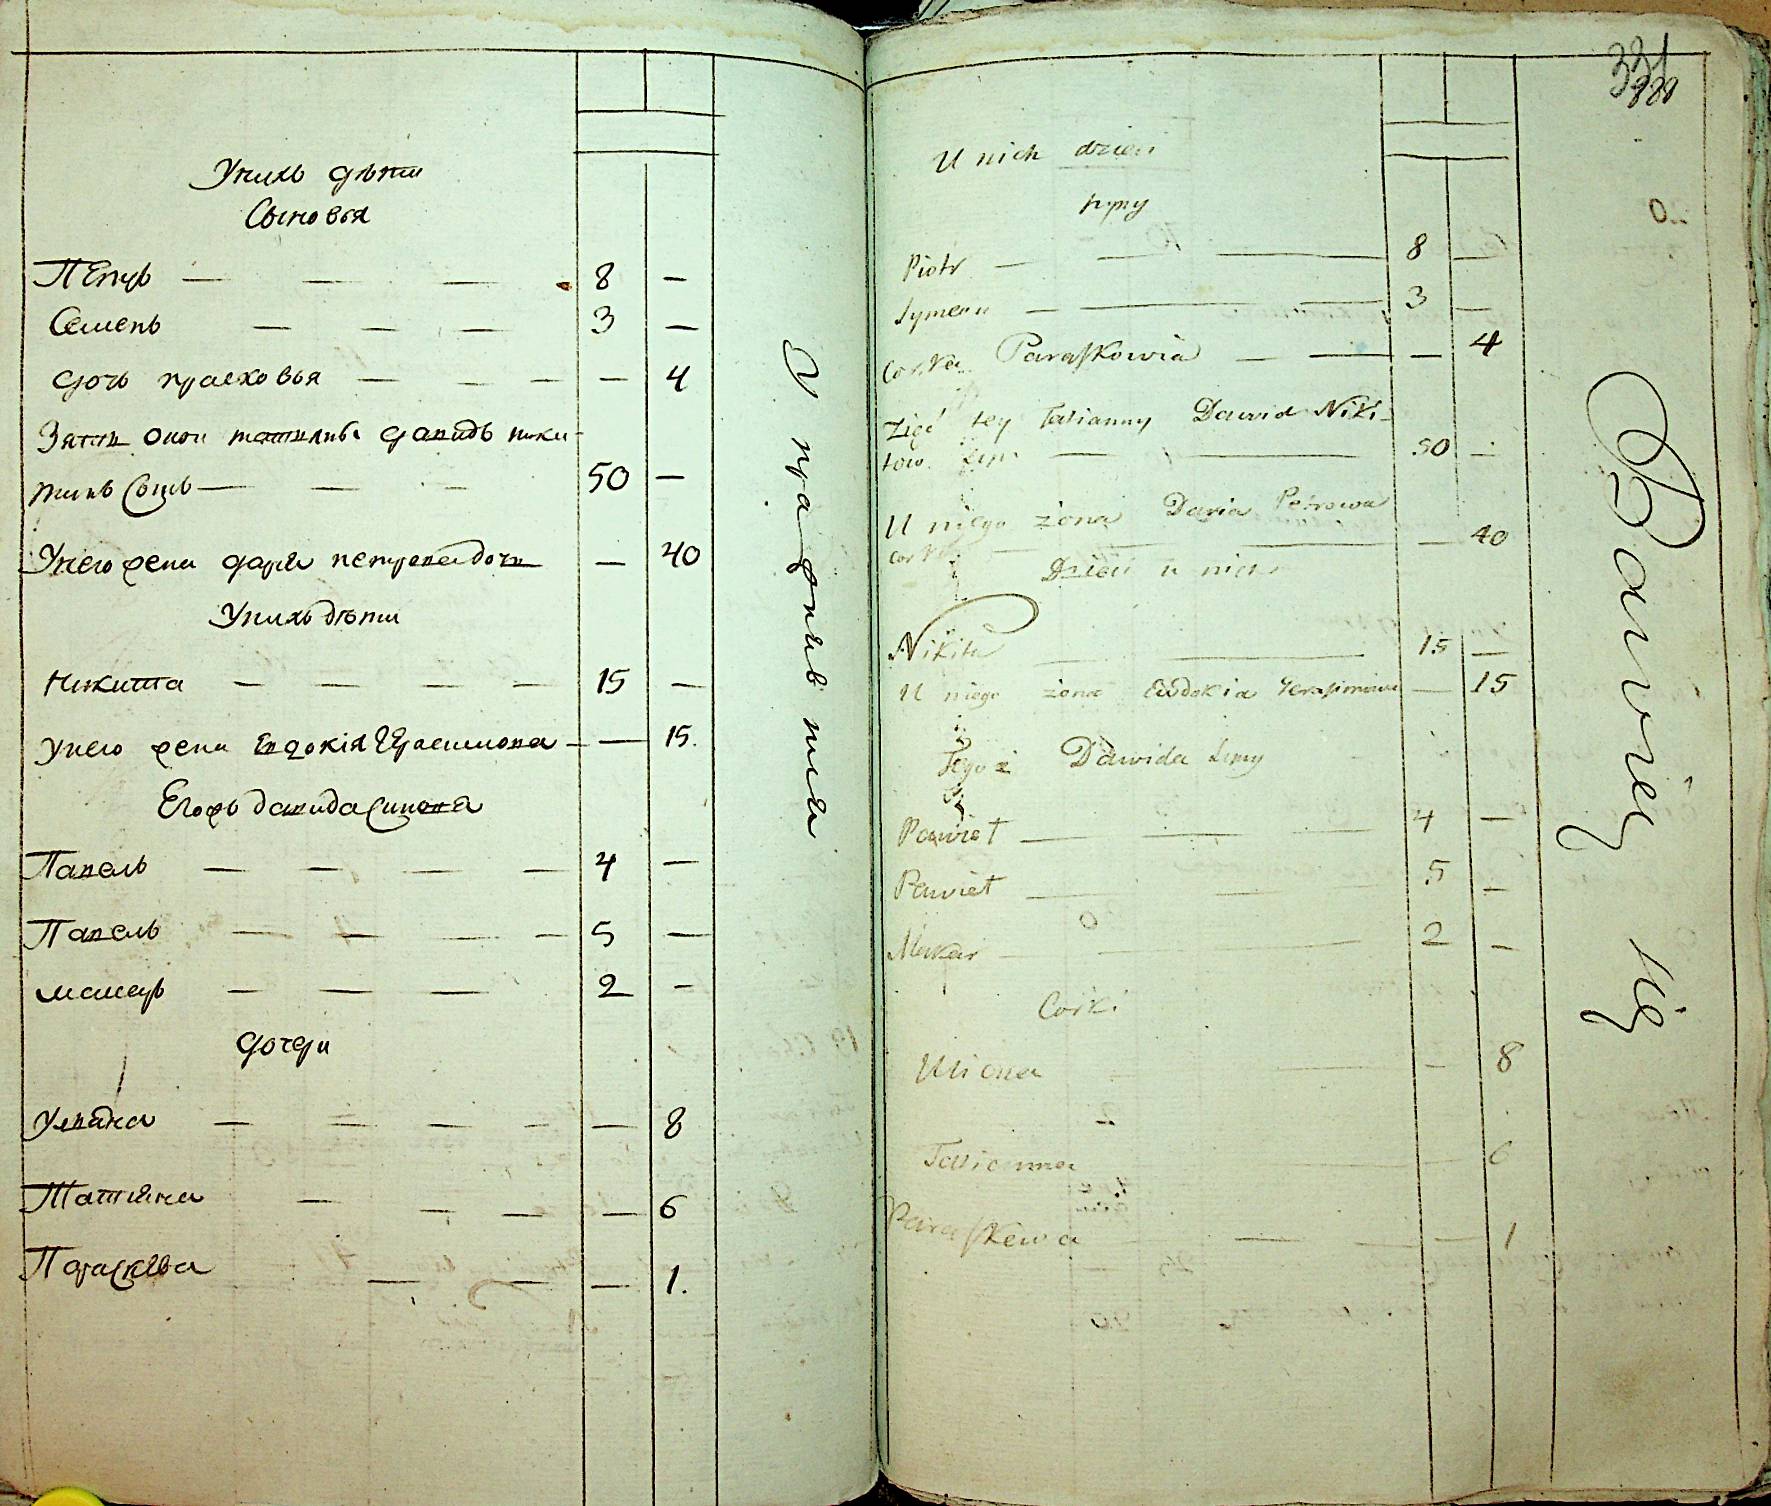 Унихъ дѣти
Сыновья
Петръ — — — 8 —
Семенъ — — — 3 —
дочь прасковья — — — — 4
Зять оной татияны давидъ ники-
тинъ Сынъ — — — 50 —
Унего жена дарья петрова дочь — 40
Унихъ дѣти
Никита — — — — 15 —
унего жена Евдокія Герасимова — — 15.
Егожъ давида Синовья
Павелъ — — — — 4 —
Павелъ — — — — 5 —
макаръ — — — 2 —
дочери
Ульяна — — — — — 8
Татьяна — — — — 6
Параскева — — — 1.
И правды въ тя
331
U nich dzieci
syny
Piotr — — — 8 —
Symeon — — — 3 —
Corka Paraskowia — — — 4
Zięć tey Tatianny Dawid Niki-
tow Syn — — — 50 —
U niego żona Daria Petrowa
corka — — — 40
Dzieci u nich
Nikita — — — 15 —
U niego żona Eudokia Gerasimowa — 15
Tegoż Dawida Syny
Paweł — — — 4 —
Paweł — — 5 —
Makar — — — 2 —
Corki
Uliana — — — 8
Tatianna — — 6
Paraskewa — — — 1
Bawię się